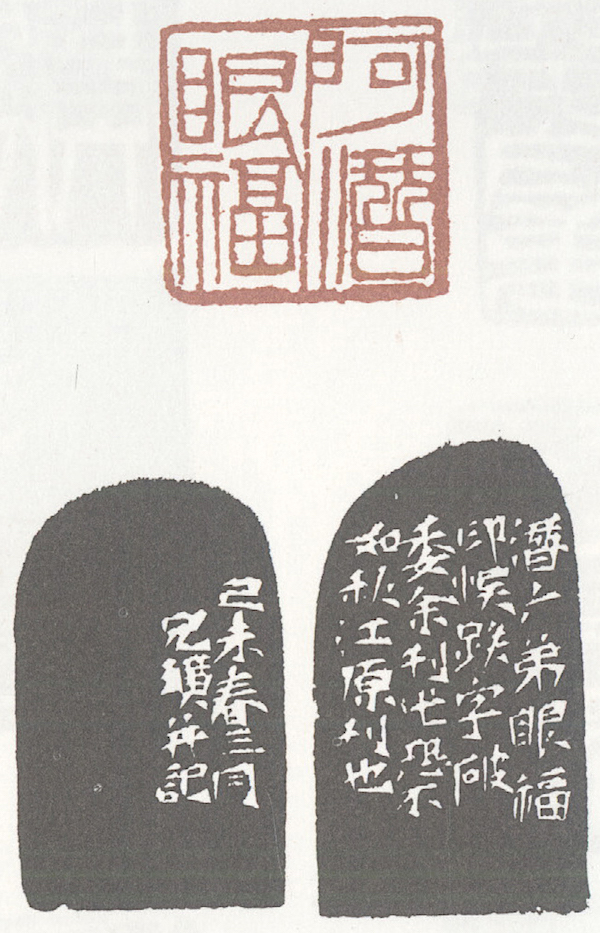 阿潛
眼福
潛厂弟眼福
印悞跌字破
委余刊恐不
如秋江原刊也
己未春三月
兄并記